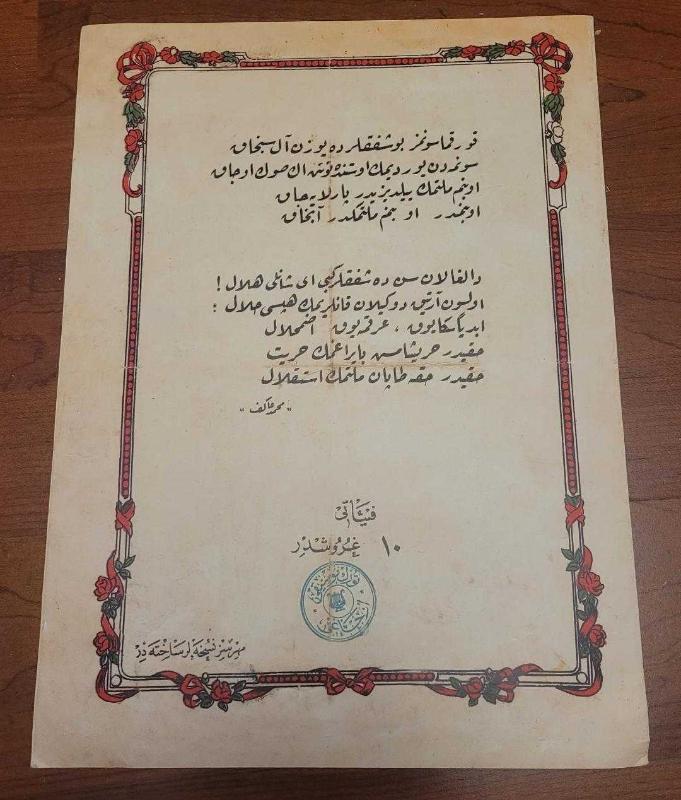 قورقما سونمز بو شفقلرده یوزن آل سنجاق
سونمه‌دن یوردیمك اوستنده توتن اڭ صوڭ اوجاق
او بنم ملتمك ییلدیزیدر پارلایه جاق
او بنمدر او بنم ملتمكدر آنجاق
دالغالان سن ده شفقلر كبی ای شانلی هلال !
اولسون آرتق دوكیلان قانلریمك هپسی حلال ؛
ابدیاً سكا یوق ، عرقمه یوق اضمحلال
حقیدر حر یشامش بایراغمك حریت
حقیدر حقه طاپان ملتمك استقلال
" محمد عاكف "
فیئاتی
١٠ غروشدر
مهرسز نسخه‌لر ساخته در